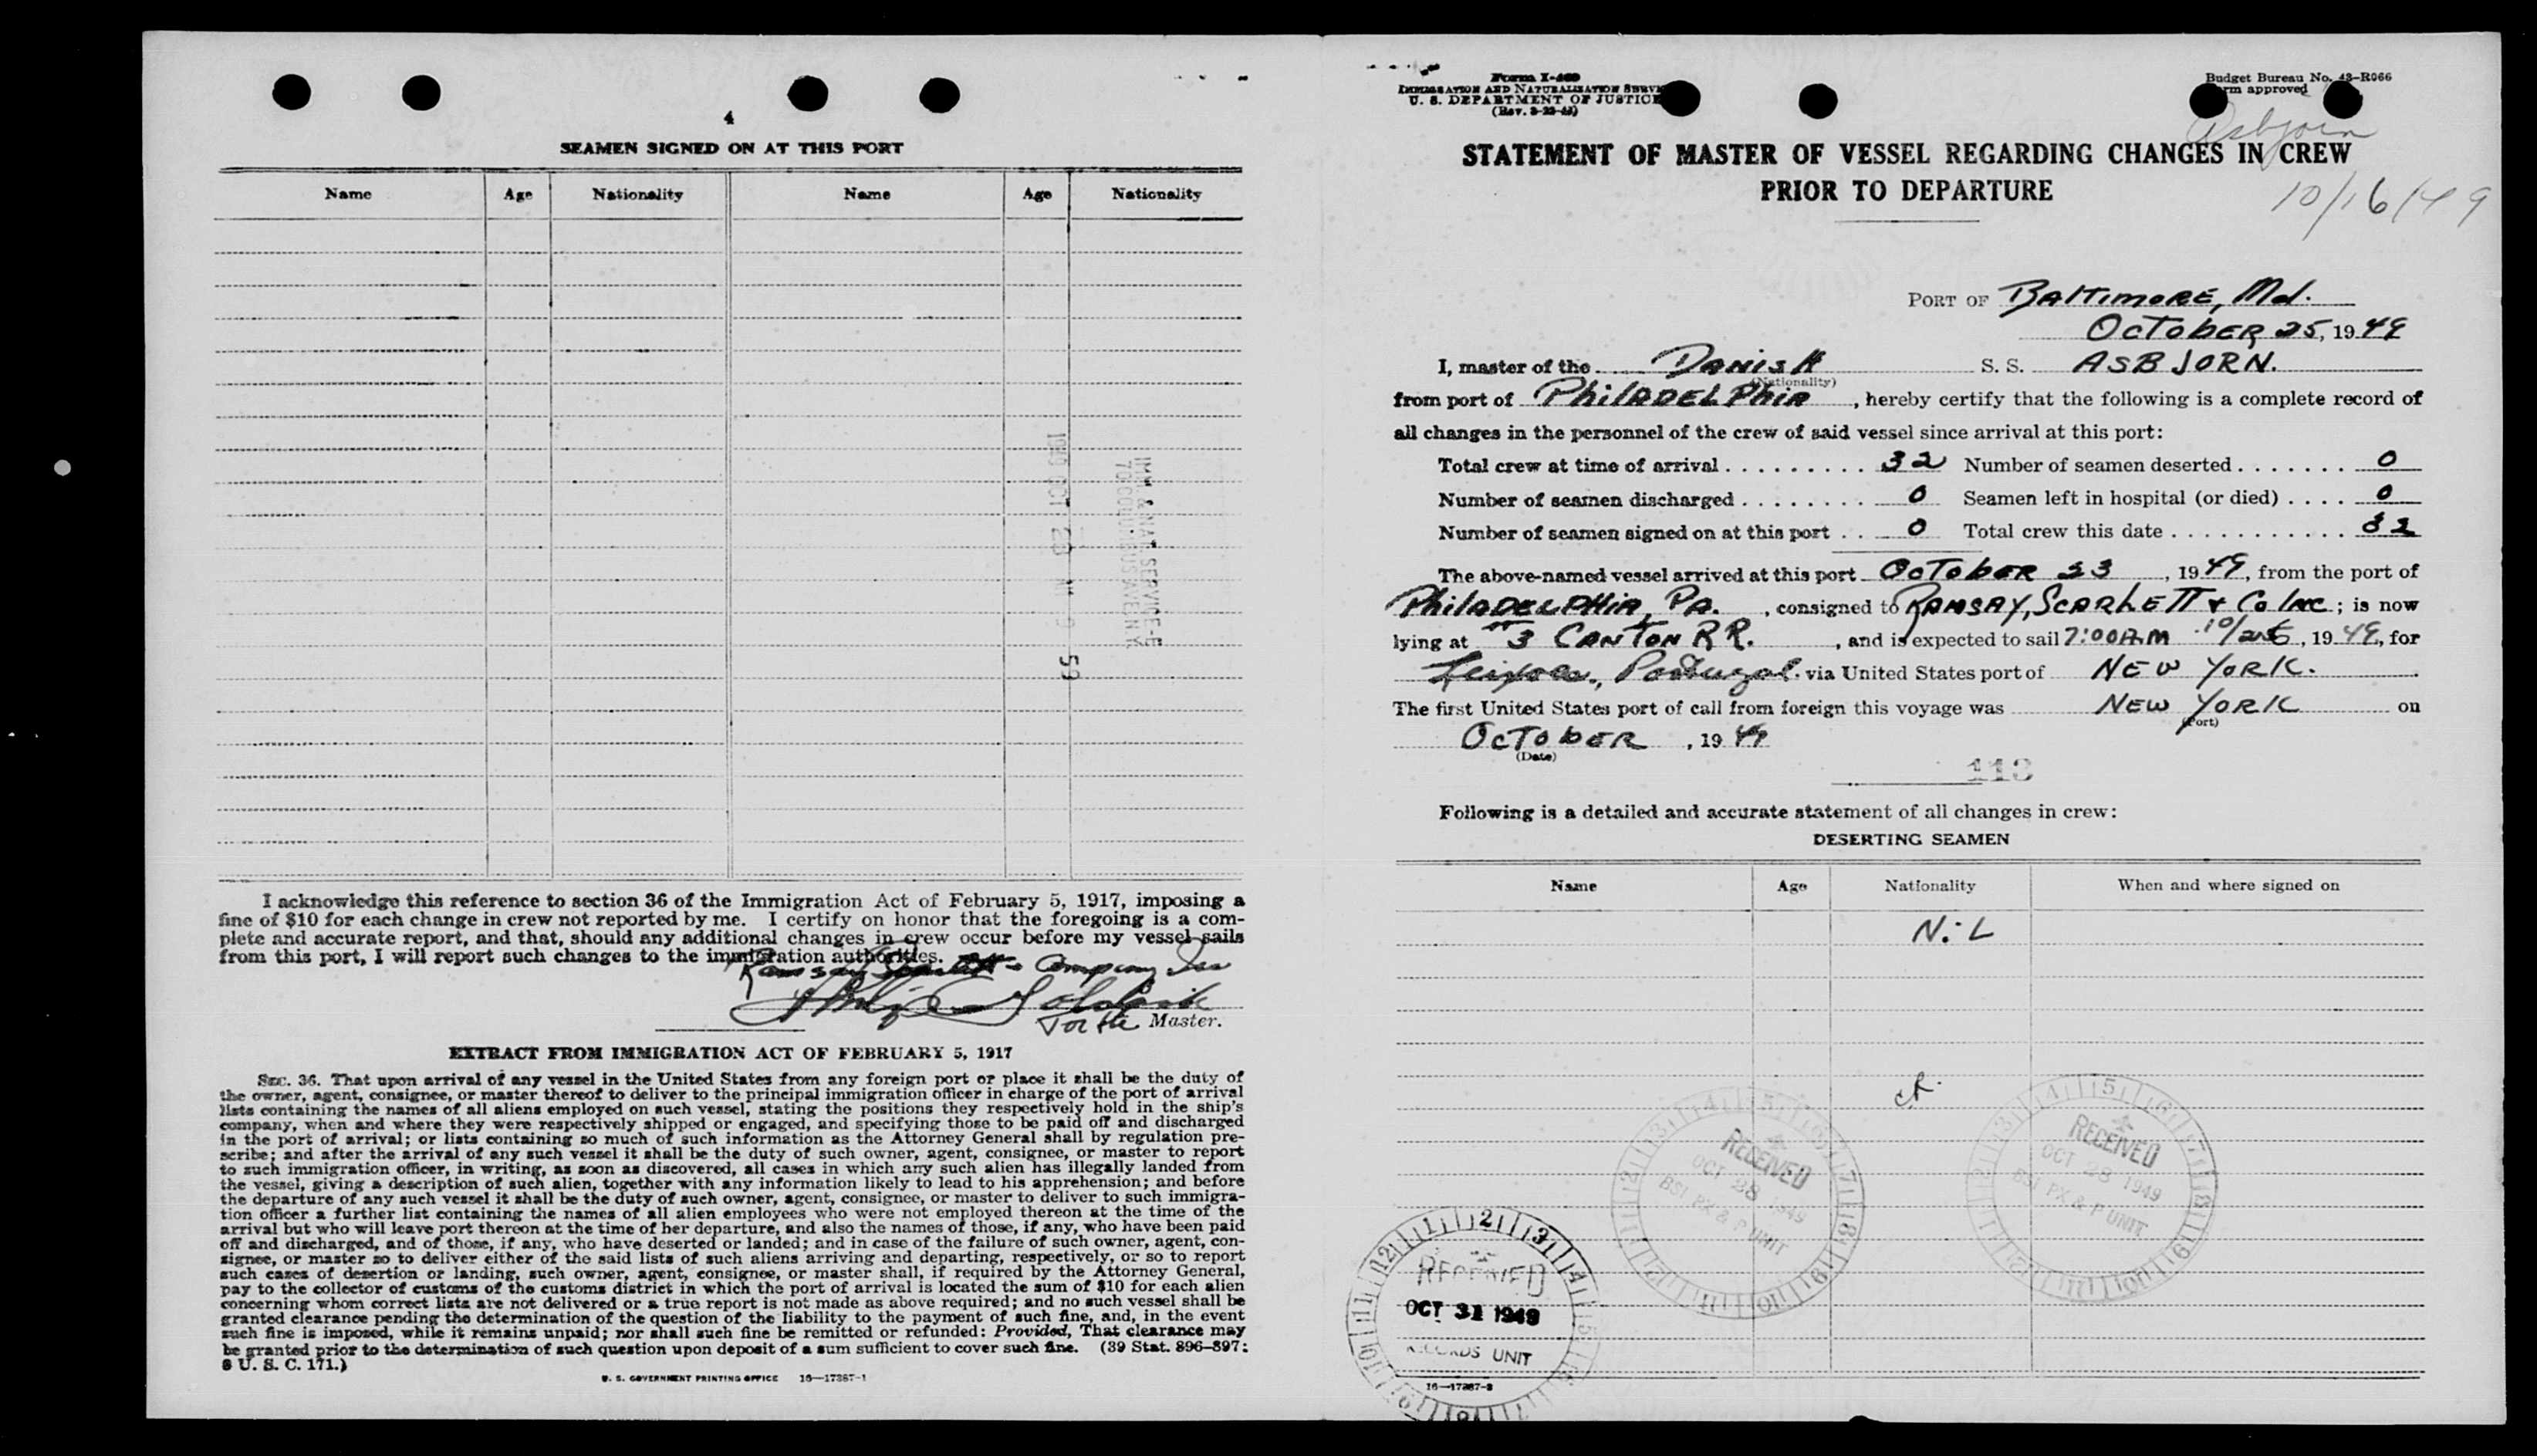 4
SEAMEN SIGNED ON AT THIS PORT
Name Age Nationality Name Age Nationality
IMM & NAT SERVICE
1949 OCT 28 59
I acknowledge this reference to section 36 of the Immigration Act of February 5, 1917, imposing a
fine of $10 for each change in crew not reported by me. I certify on honor that the foregoing is a com-
plete and accurate report, and that, should any additional changes in crew occur before my vessel sails
from this port, I will report such changes to the immigration authorities.
Ramsay Scarlett & Company Inc
For the Master.
EXTRACT FROM IMMIGRATION ACT OF FEBRUARY 5, 1917
SEC. 36. That upon arrival of any vessel in the United States from any foreign port or place it shall be the duty of
the owner, agent, consignee, or master thereof to deliver to the principal immigration officer in charge of the port of arrival
lists containing the names of all aliens employed on such vessel, stating the positions they respectively hold in the ship's
company, when and where they were respectively shipped or engaged, and specifying those to be paid off and discharged
in the port of arrival; or lists containing so much of such information as the Attorney General shall by regulation pre-
scribe; and after the arrival of any such vessel it shall be the duty of such owner, agent, consignee, or master to report
to such immigration officer, in writing, as soon as discovered, all cases in which any such alien has illegally landed from
the vessel, giving a description of such alien, together with any information likely to lead to his apprehension; and before
the departure of any such vessel it shall be the duty of such owner, agent, consignee, or master to deliver to such immigra-
tion officer a further list containing the names of all alien employees who were not employed thereon at the time of the
arrival but who will leave port thereon at the time of her departure, and also the names of those, if any, who have been paid
off and discharged, and of those, if any, who have deserted or landed; and in case of the failure of such owner, agent, con-
signee, or master so to deliver either of the said lists of such aliens arriving and departing, respectively, or so to report
such cases of desertion or landing, such owner, agent, consignee, or master shall, if required by the Attorney General,
pay to the collector of customs of the customs district in which the port of arrival is located the sum of $10 for each alien
concerning whom correct lists are not delivered or a true report is not made as above required; and no such vessel shall be
granted clearance pending the determination of the question of the liability to the payment of such fine, and, in the event
such fine is imposed, while it remains unpaid; nor shall such fine be remitted or refunded: Provided, That clearance may
be granted prior to the determination of such question upon deposit of a sum sufficient to cover such fine. (39 Stat. 896-897;
8 U. S. C. 171.)
U. S. GOVERNMENT PRINTING OFFICE 16—17367-1
Form I-489
IMMIGRATION AND NATURALIZATION SERV
U. S. DEPARTMENT OF JUSTICE
Budget Bureau No. 43-R066
rm approved
Asbjorn
STATEMENT OF MASTER OF VESSEL REGARDING CHANGES IN CREW
PRIOR TO DEPARTURE
10/16/49
PORT OF BALTIMORE, Md.
OCTOBER 25, 1949
I, master of the DANISH S. S. ASBJORN.
(Nationality)
from port of PhilADELPhiA, hereby certify that the following is a complete record of
all changes in the personnel of the crew of said vessel since arrival at this port:
Total crew at time of arrival . . . . . . . . . 32 Number of seamen deserted . . . . . . . 0
Number of seamen discharged . . . . . . . . 0 Seamen left in hospital (or died) . . . . 0
Number of seamen signed on at this port . . 0 Total crew this date . . . . . . . . . . . 32
The above-named vessel arrived at this port OCTOBER 23, 1949, from the port of
PhilADELPHIA, PA., consigned to RAMSAY, SCARLETT & Co Inc; is now
lying at #3 CANTON RR., and is expected to sail 7:00 A.M 10/26, 1949, for
Leixoes, Portugal. via United States port of NEW YORK.
The first United States port of call from foreign this voyage was NEW YORK on
(Port)
OCTOBER, 1949
(Date)
113
Following is a detailed and accurate statement of all changes in crew:
DESERTING SEAMEN
Name Age Nationality When and where signed on
NiL
RECEIVED
OCT 28 1949
BSI PX & P UNIT
RECEIVED
OCT 28 1949
BSI PX & P UNIT
RECEIVED
OCT 31 1949
RECORDS UNIT